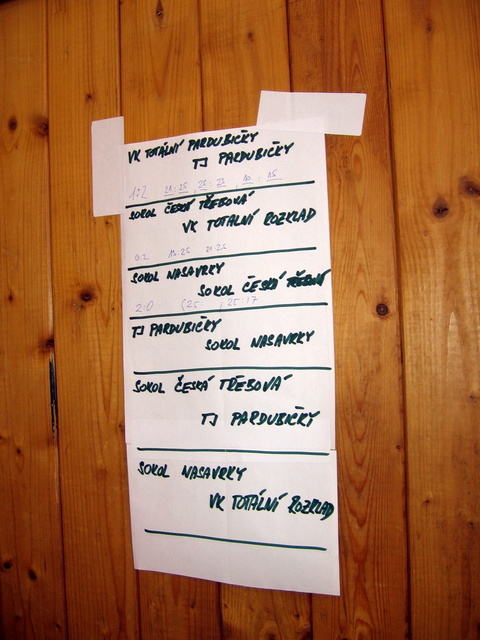 VK TOTÁLNÍ PARDUBIČKY
TJ PARDUBIČKY
1:2 21:25 25:23 10:15
SOKOL ČESKÁ TŘEBOVÁ
VK TOTÁLNÍ ROZKLAD
0:2 :25 21:25
SOKOL NASAVRKY
SOKOL ČESKÁ TŘEBOVÁ
2:0 (25: ; 25:17
TJ PARDUBIČKY
SOKOL NASAVRKY
SOKOL ČESKÁ TŘEBOVÁ
TJ PARDUBIČKY
SOKOL NASAVRKY
VK TOTÁLNÍ ROZKLAD